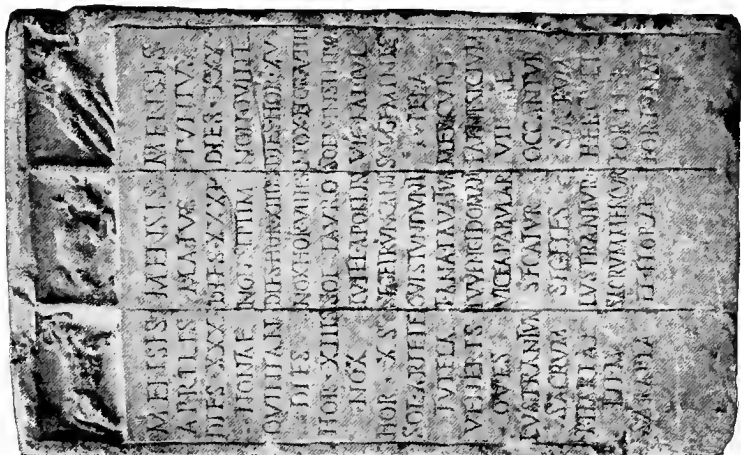 MENSIS
APRILIS
DIES·XXX
NONAE
QVINTAN
DIES
HOR·XIIIS
NOX
HOR·X·S
SOL·ARIETE
TVTELA
VENERIS
OVES
LVSTRANTVR
SACRVM
PHARIAE
ITEM
SARAPIA
MENSIS
MAIVS
DIES·XXXI
NON·SEPTIM
DIES·HOR·XIIIIS
NOX·HOR·VIIIIS
SOL·TAVRO
TVTELA·APOLLIN
SEGET·RVNCANT
OVES·TONDENT
LANA·LAVATVR
IVVENCI·DOMANT
VICEA·PABVLAR
SECATVR
SEGETES
LVSTRANTVR
SACRVM·MERCVR
ET·FLORAE
MENSIS
IVNIVS
DIES·XXX
NON·QVINT
DIES·HOR·XV
NOX·HOR·VIIII
SOLIS·INSTITIVM
VIII·KAL·IVL
SOL·GEMINIS
TVTELA
MERCVRI
FAENISICIVM
VINEAE
OCCANTVR
SACRVM
HERCVLI
FORTIS
FORTVNAE